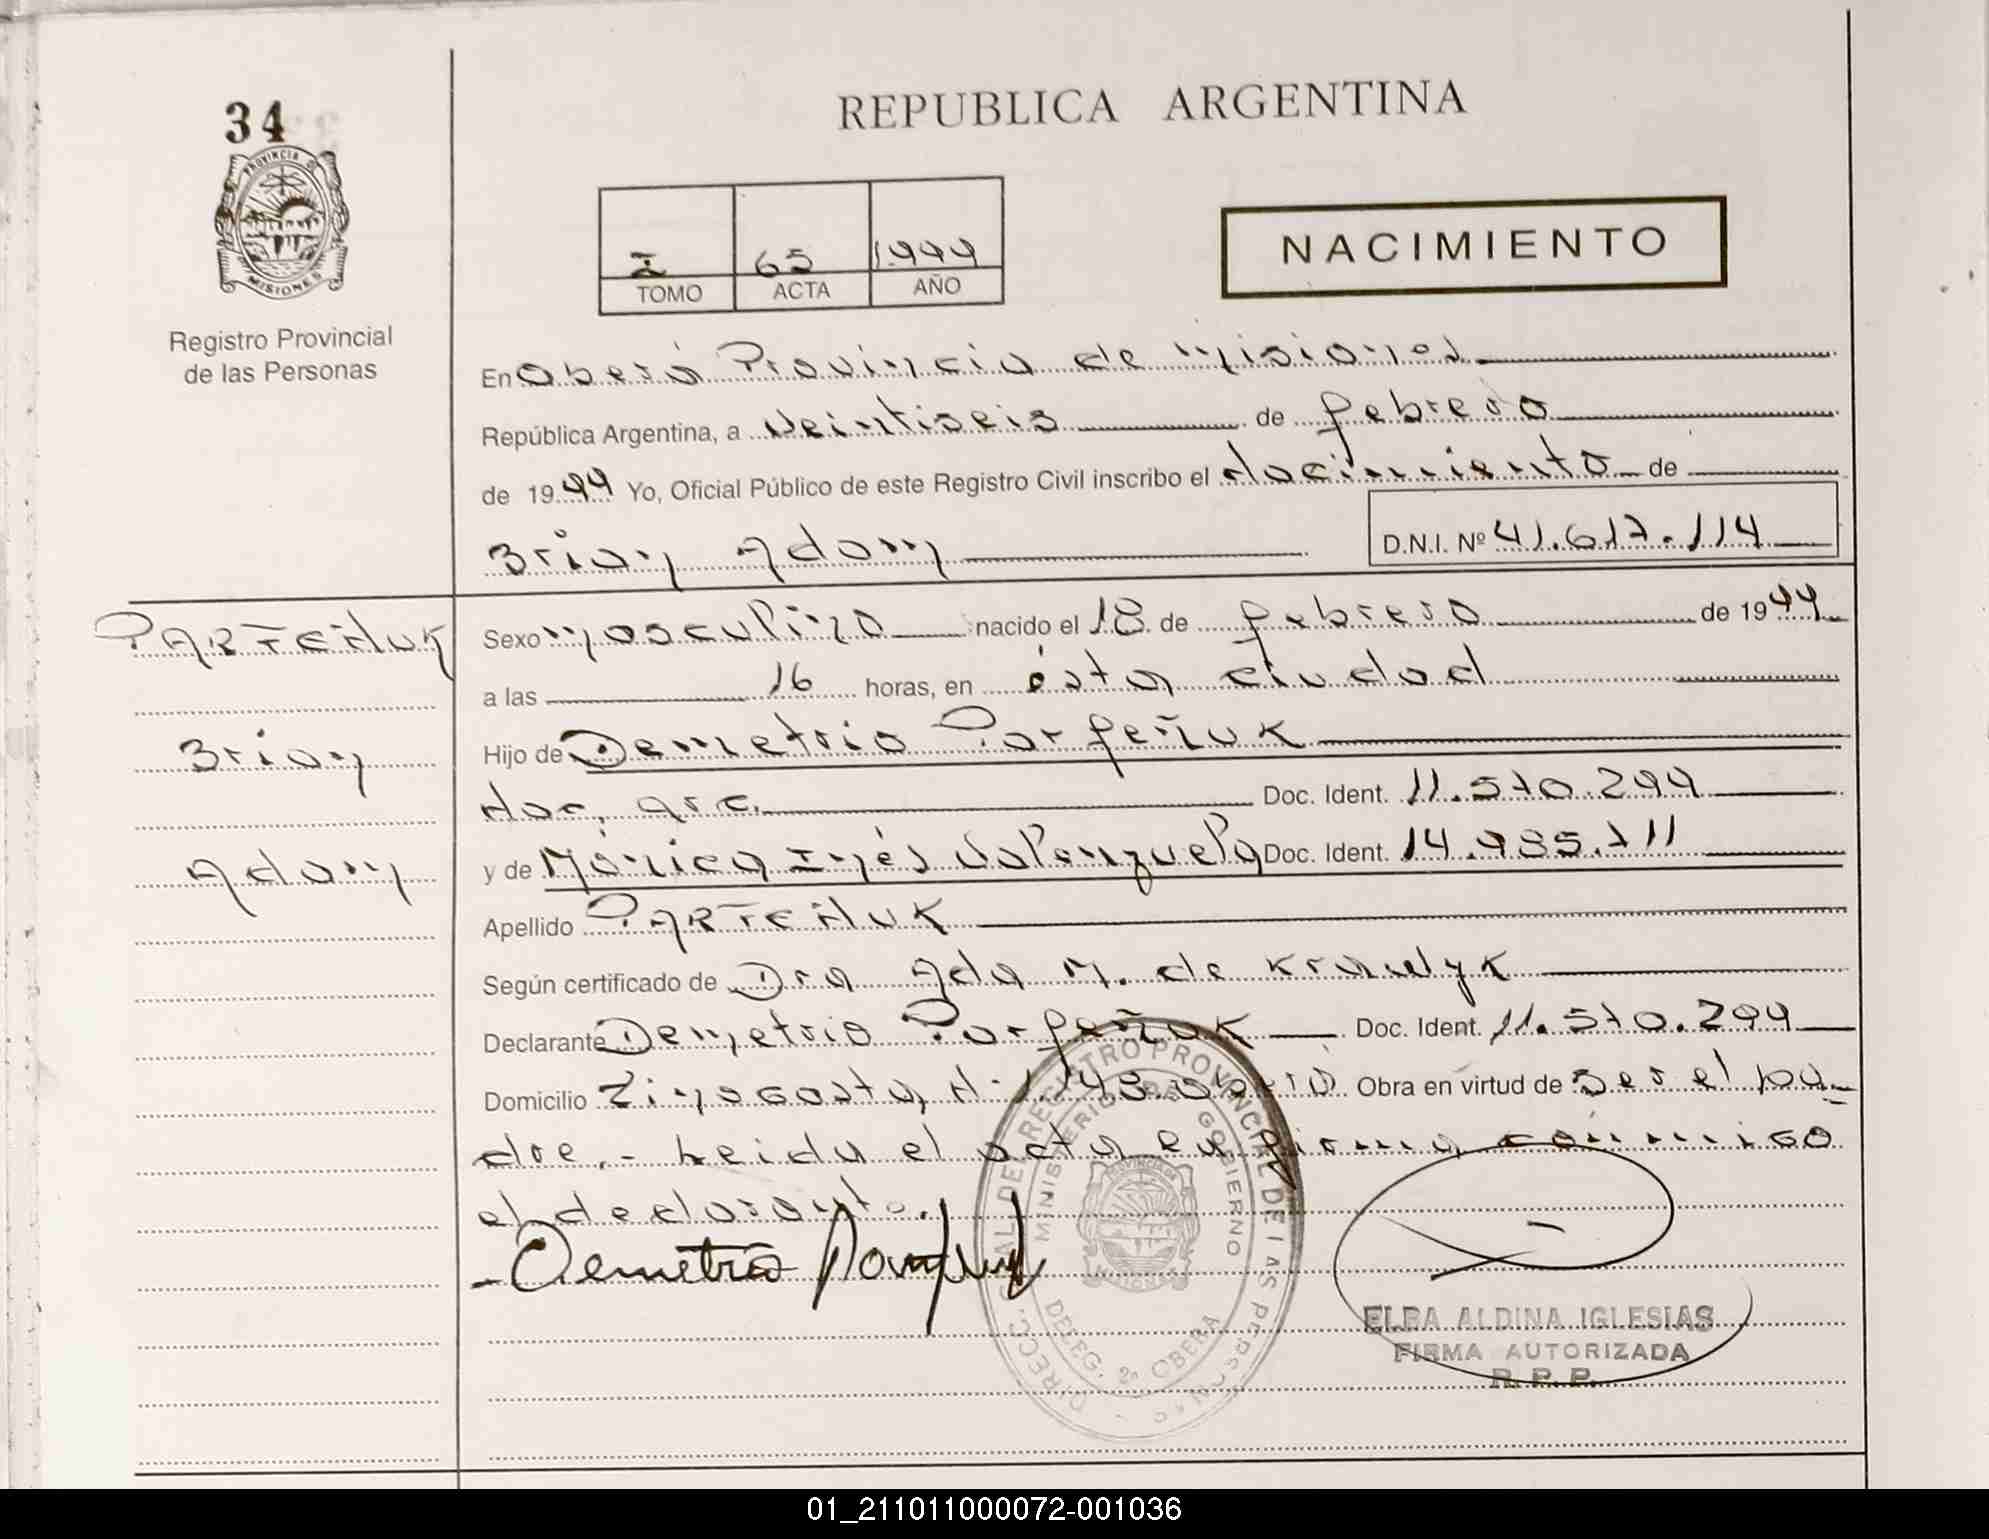 34
PROVINCIA DE
MISIONES
Registro Provincial
de las Personas
REPUBLICA ARGENTINA
I 65 1.999
TOMO ACTA AÑO
NACIMIENTO
En Oberá Provincia de Misiones
República Argentina, a veintiseis de febrero
de 1999 Yo, Oficial Público de este Registro Civil inscribo el Nacimiento de
Brian Adam D.N.I. Nº 41.617.114
PARFEÑUK
Brian
Adam
Sexo masculino nacido el 18 de febrero de 1999
a las 16 horas, en ésta ciudad
Hijo de Demetrio Parfeñuk
Nac. Arg. Doc. Ident. 11.570.299
y de Mónica Inés Valenzuela Doc. Ident. 14.985.711
Apellido PARFEÑUK
Según certificado de Dra Ada M. de Krawyk
Declarante Demetrio Parfeñuk Doc. Ident. 11.570.299
Domicilio Oberá Obra en virtud de ser el pa-
dre.- Leida el acta la firma conmigo
el declarante.
Demetrio
DIRECC. GRAL DEL REGISTRO PROVINCIAL DE LAS PERSONAS
MINISTERIO DE GOBIERNO
DELEG. 2a OBERA
ELBA ALDINA IGLESIAS
FIRMA AUTORIZADA
R. P. P.
01_211011000072-001036